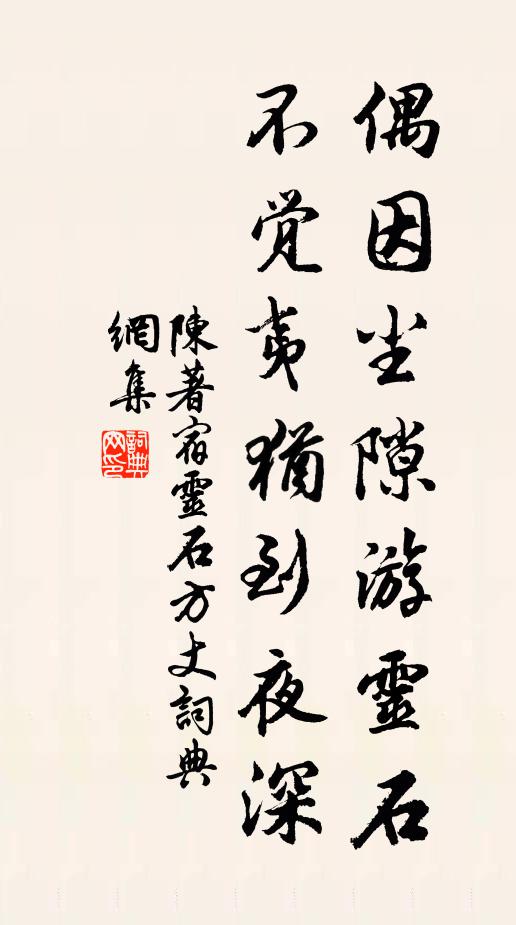 偶因尘隙游靈石
不觉夷猶到夜深
陳著宿靈石方丈詞典
網集
詞典網印